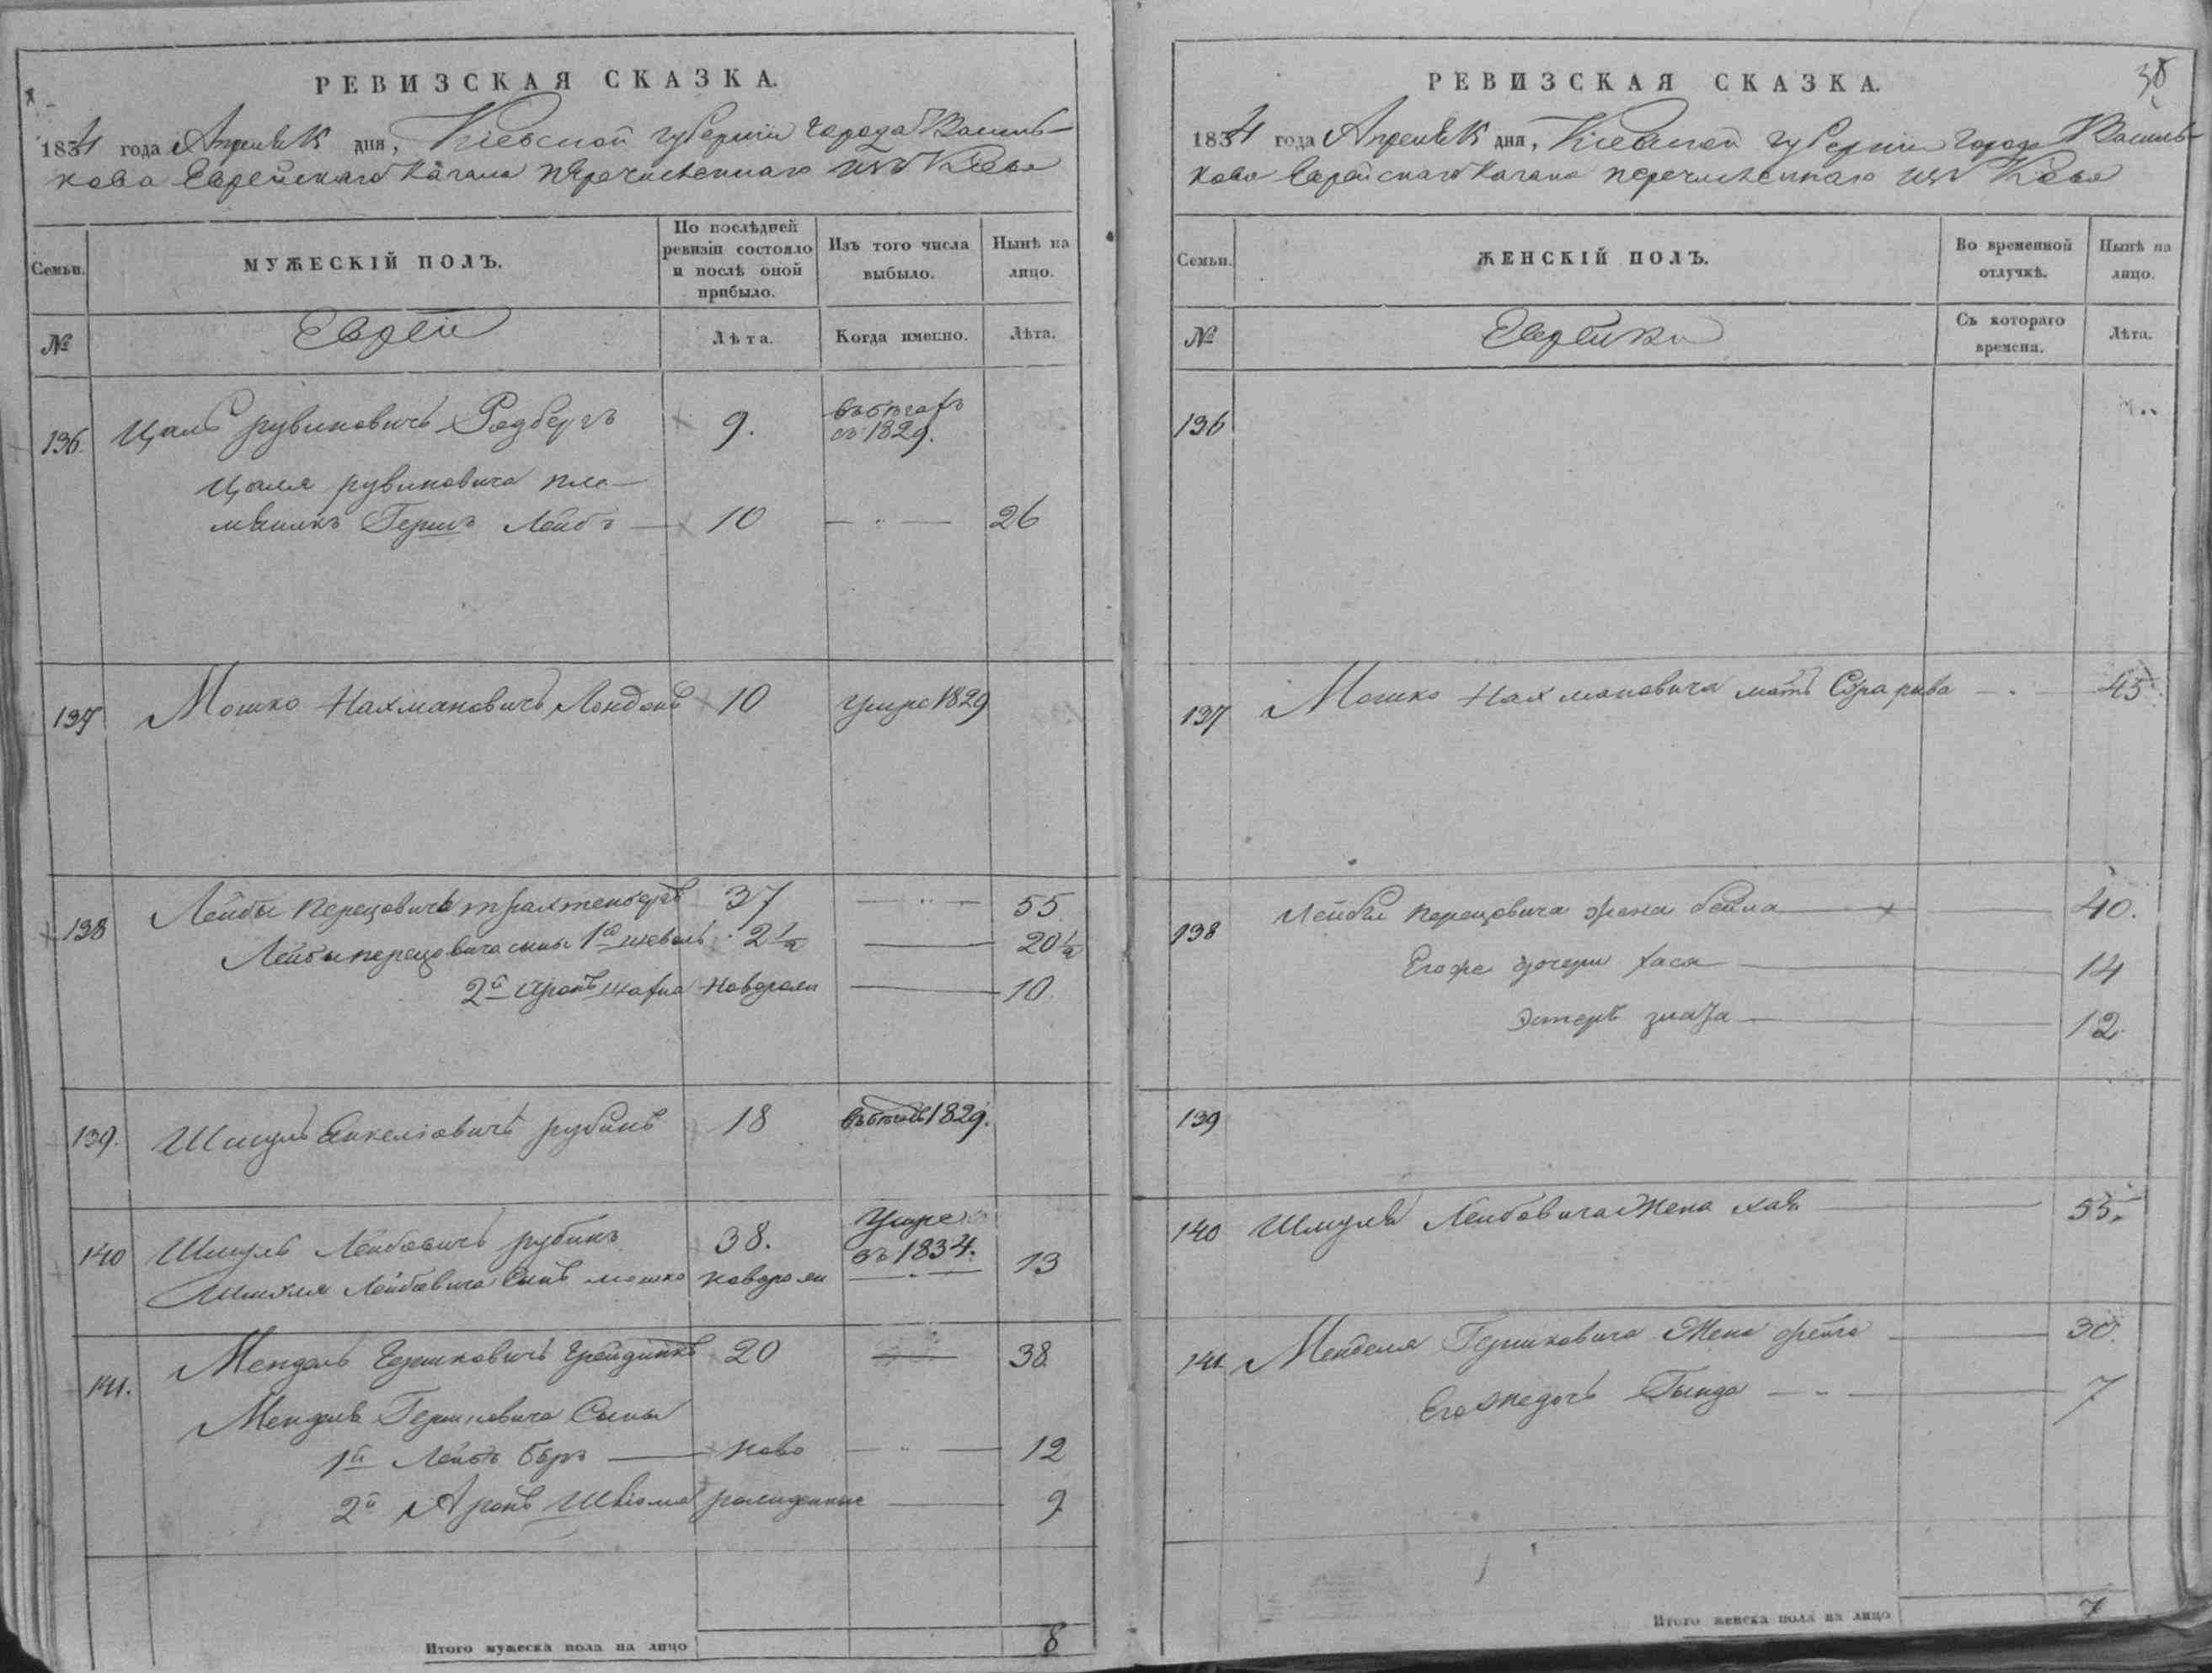 РЕВИЗСКАЯ СКАЗКА.
1834 года Апреля 15 дня, Кіевской губерніи города Василь-
кова Еврейскаго Кагала перечисленнаго изъ Кіева
Семьи.
МУЖЕСКІЙ ПОЛЪ.
По послѣдней ревизіи состояло и послѣ оной прибыло.
Изъ того числа выбыло.
Нынѣ на лицо.
№
Евреи
Лѣта.
Когда именно.
Лѣта.
136. Цаль рувиновичъ Родбергъ 9. въ бегахъ съ 1829.
Цаля рувиновича пле-
мяникъ Гершъ Лейбъ — 10 — " — 26
137 Мошко Нахмановичъ Лондонъ 10 умре 1829
138 Лейбы Перецовичъ трахтенбергъ 37 — " — 55
Лейбы перецовича сыны 1й 2 1/2 — 20 1/2
2й новорожден — 10.
139. Шмуль рубинъ 18 1829.
140 Шмуль Лейбовичъ рубинъ 38. Умре
въ 1834.
Шмуля Лейбовича сынъ мошко новорожден — 13
141. Мендель Гершковичъ 20 — 38.
Менделя Гершковича Сыны
1й Лейбъ беръ — ново — " — 12
2й Аронъ рожденные — 9
Итого мужеска пола на лицо 8
38
РЕВИЗСКАЯ СКАЗКА.
1834 года Апреля 15 дня, Кіевской губерніи города Василь-
кова Еврейскаго Кагала перечисленнаго изъ Кіева
Семьи.
ЖЕНСКІЙ ПОЛЪ.
Во временной отлучкѣ.
Нынѣ на лицо.
№
Еврейки
Съ котораго времени.
Лѣта.
136
137 Мошко Нахмановича мать Сура рива — 45
138 Лейбы перецовича жена бейла — 40.
Его же дочери хася — 14
Эстеръ злата — 12.
139
140 Шмуля Лейбовича Жена хая — 55.
141 Менделя Гершковича Жена фейга — 30.
Его же дочь Гинда — " — 7
Итого женска пола на лицо 7